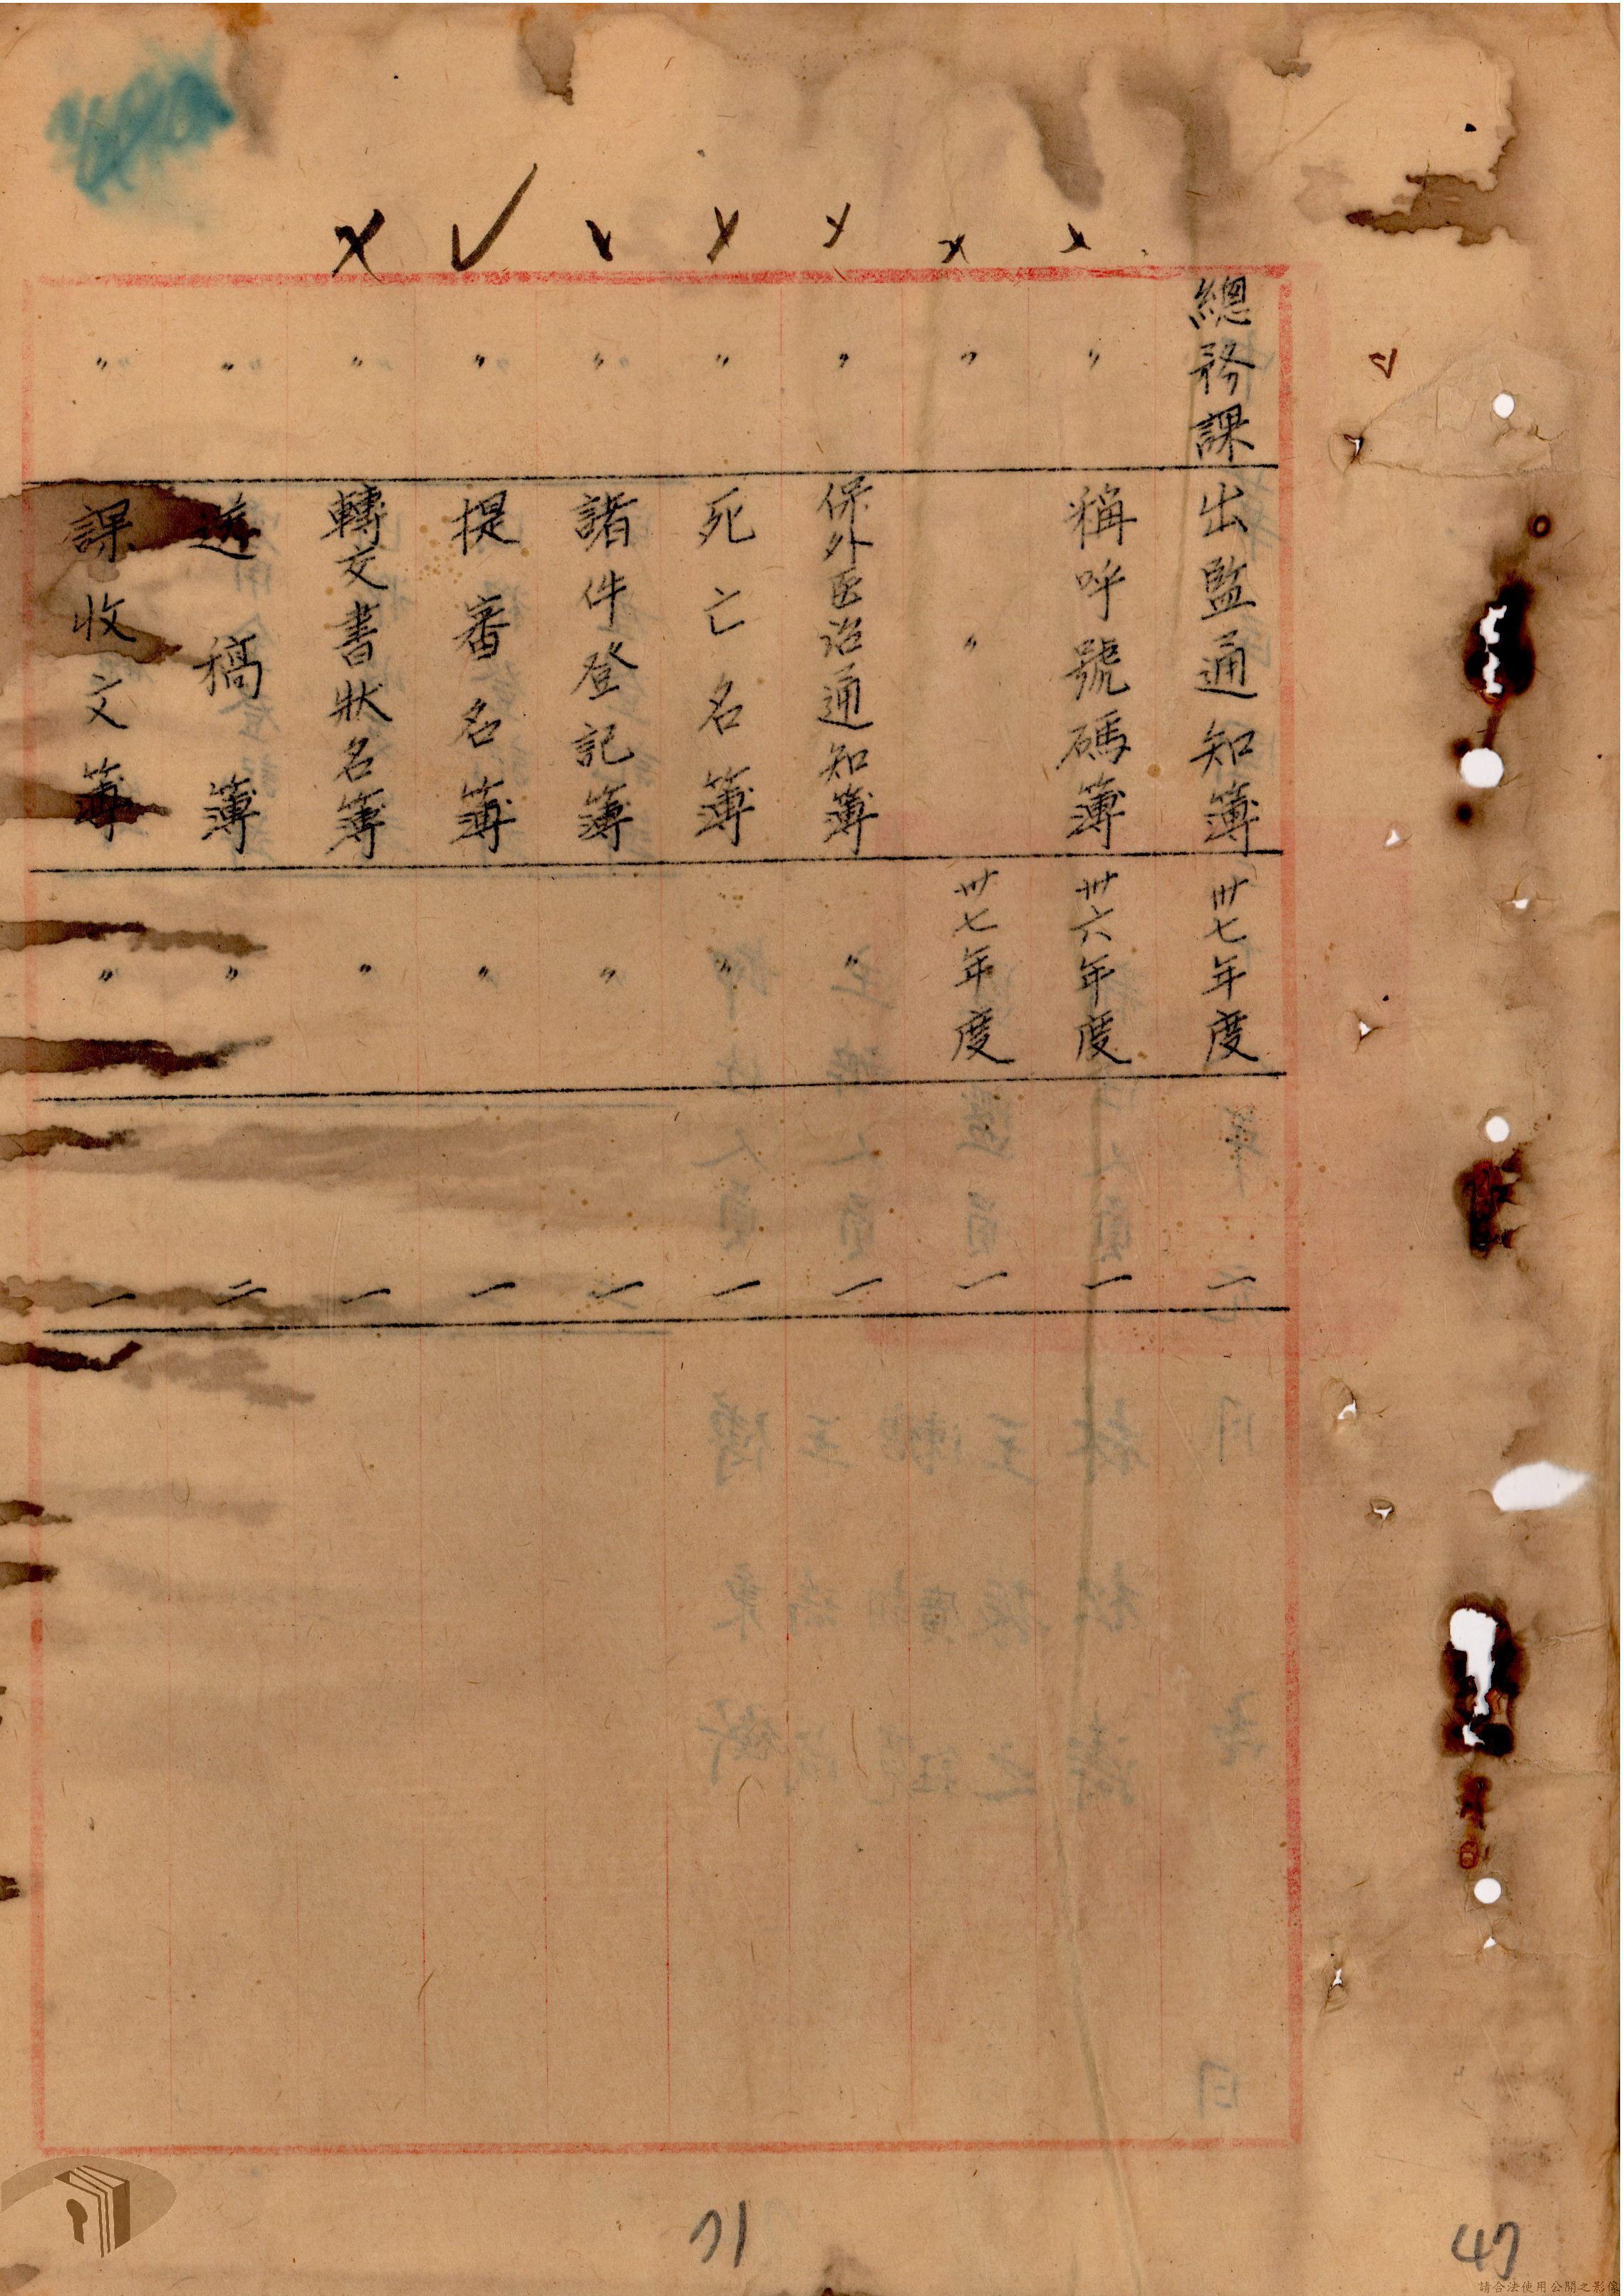 總務課 出監通知簿 卅七年度 一
〃 稱呼號碼簿 卅六年度 一
〃 〃 卅七年度 一
〃 保外医治通知簿 〃 一
〃 死亡名簿 〃 一
〃 諸件登記簿 〃 一
〃 提審名簿 〃 一
〃 轉文書狀名簿 〃 一
〃 送稿簿 〃 二
〃 課收文簿 〃 一
71
47
請合法使用公開之影像